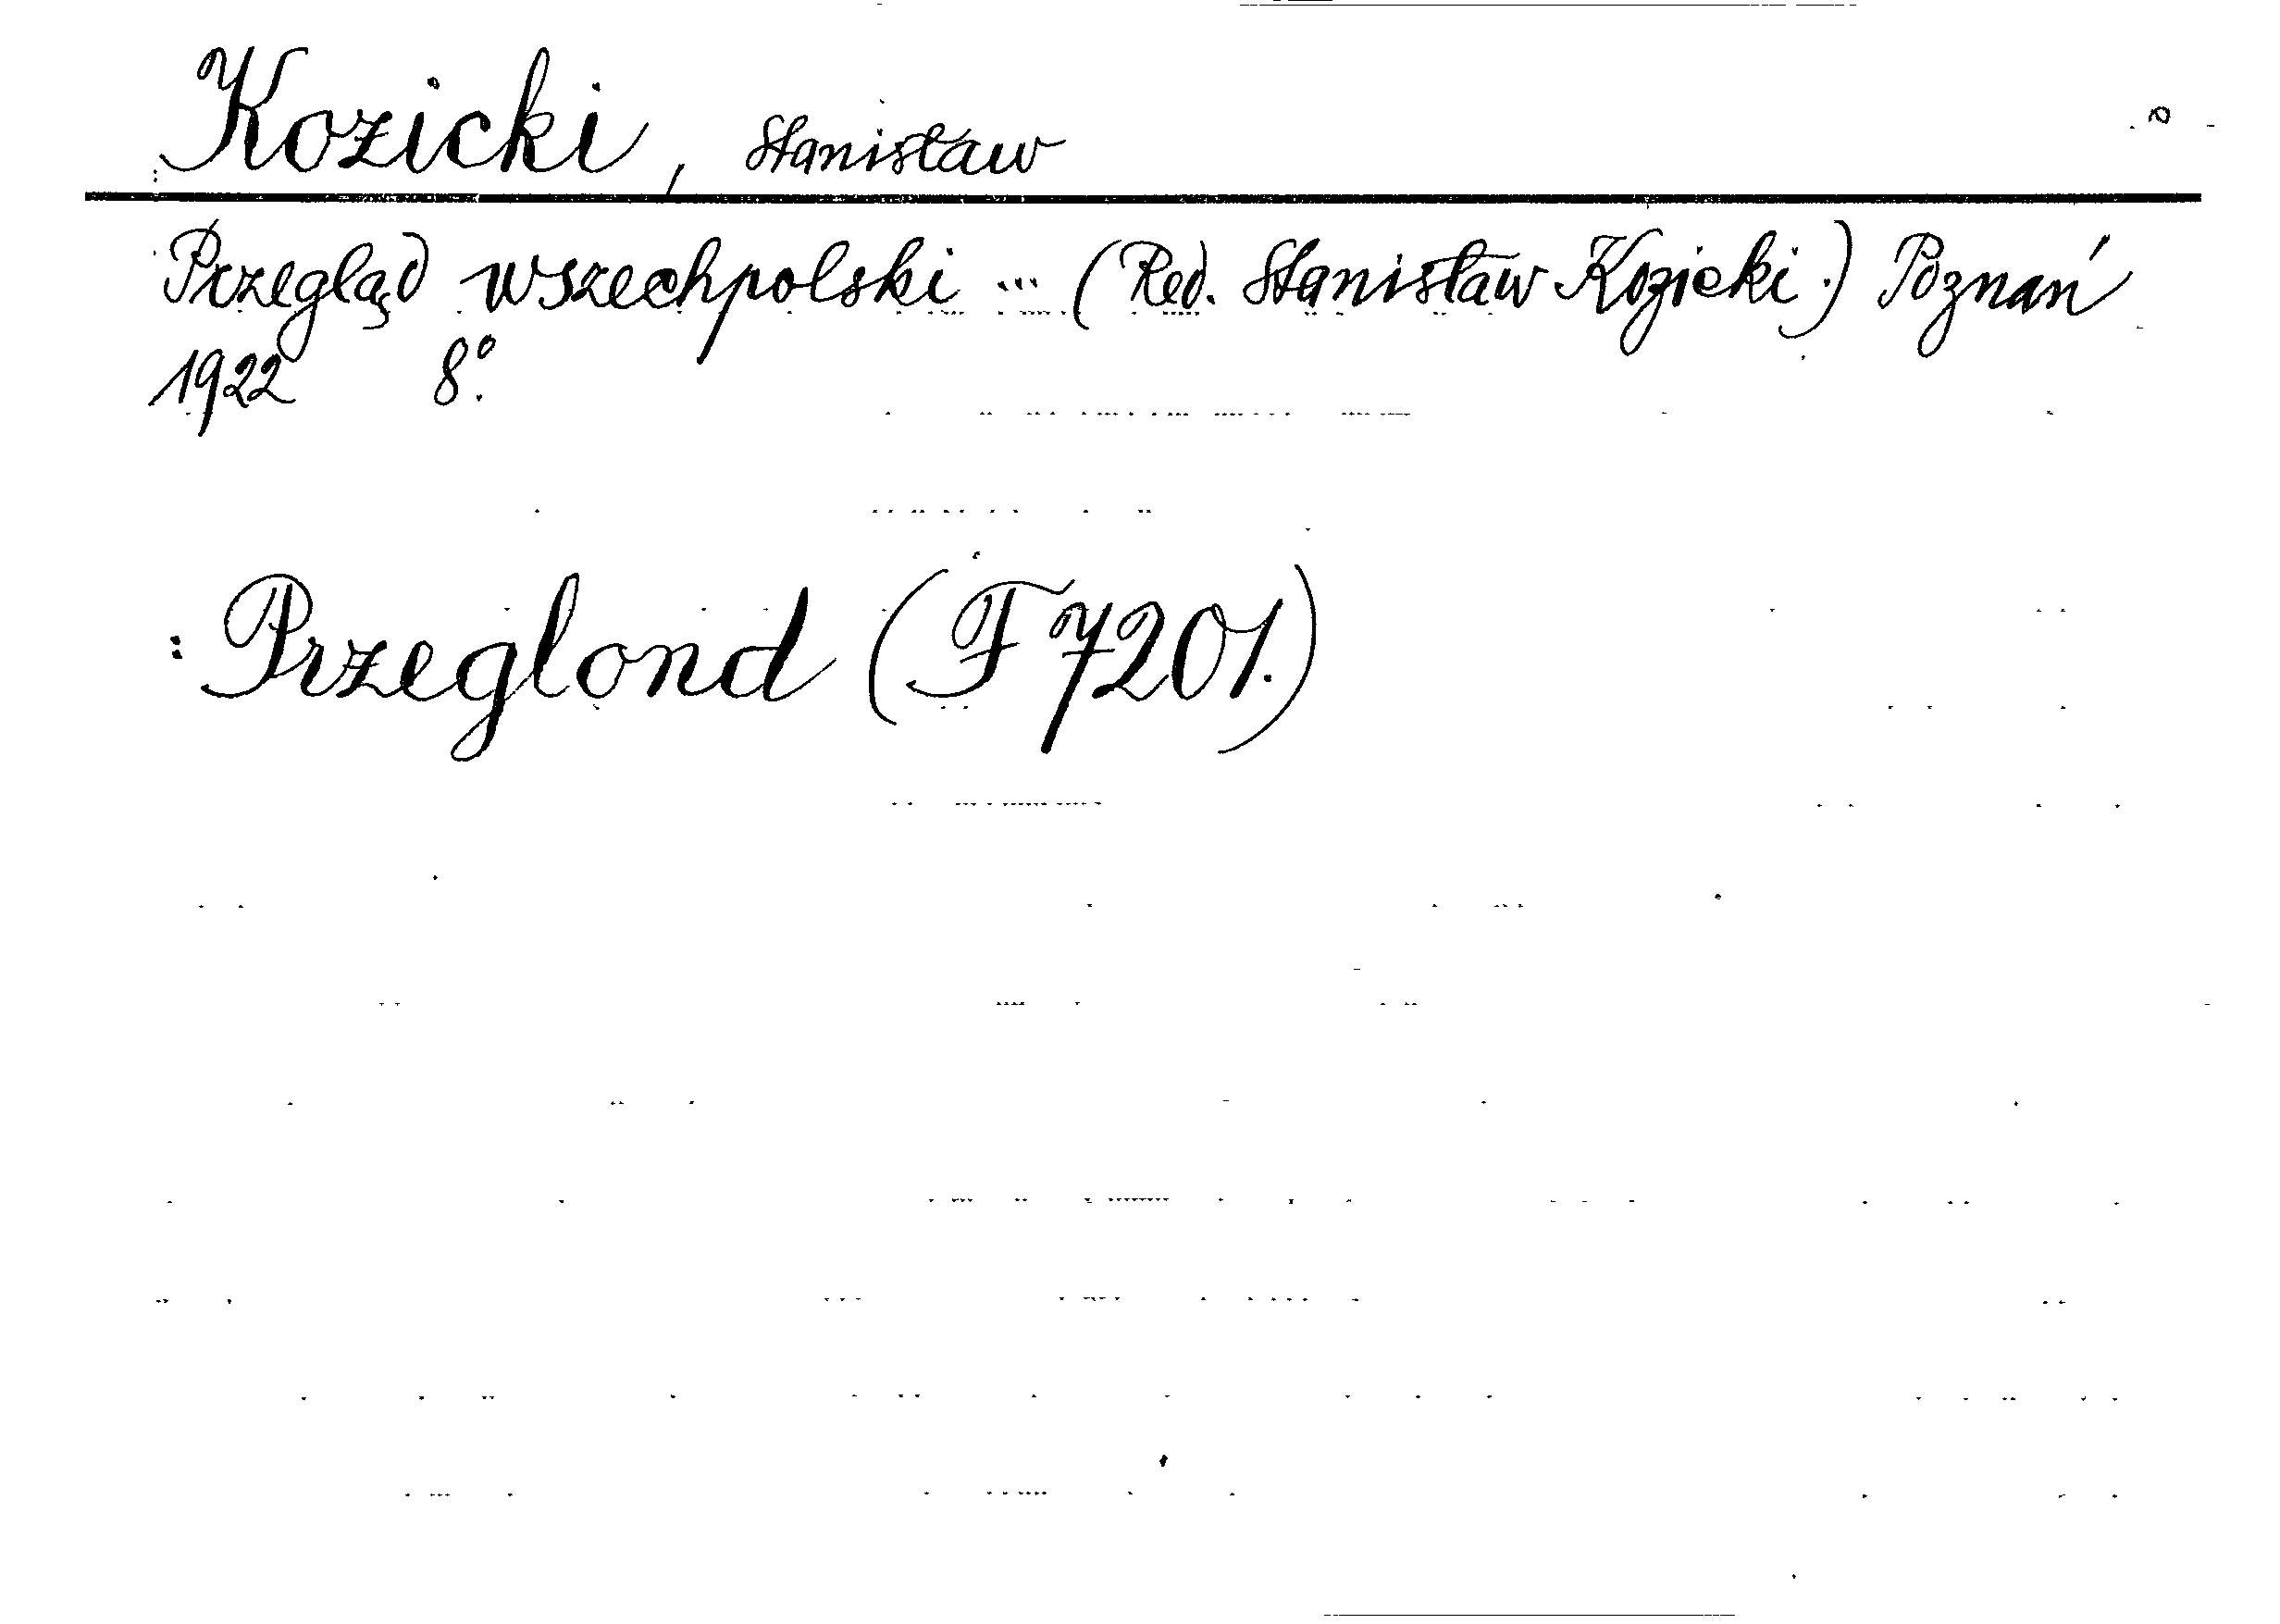 Kozicki, Stanisław
Przegląd wszechpolski ... (Red. Stanisław Kozicki.) Poznań
1922 8°.
: Przeglond (F 7201.)